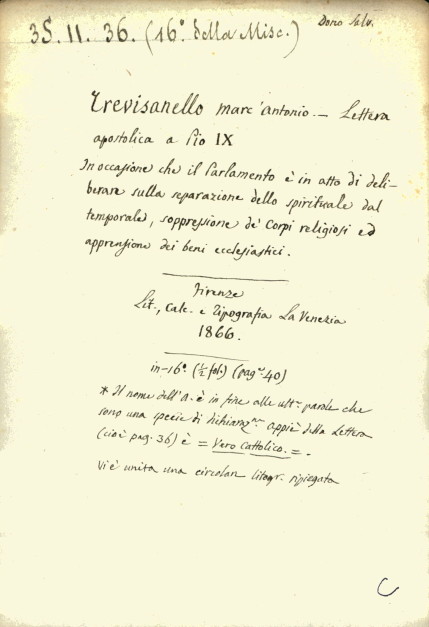 35. 11. 36. (16º della Misc.)
Dono Selv.
Trevisanello Marc'Antonio. — Lettera
apostolica a Pio IX
In occasione che il Parlamento è in atto di deli-
berare sulla separazione dello spirituale dal
temporale, soppressione de' Corpi religiosi ed
apprensione dei beni ecclesiastici.
Firenze
Lit., Calc. e Tipografia La Venezia
1866.
in-16º (½ fol.) (pag. 40)
* Il nome dell'A. è in fine alle ult. parole che
sono una specie di appiè della Lettera
(cioè pag. 36) è = Vero Cattolico. = .
Vi è unita una circolare litogr. ripiegata
C